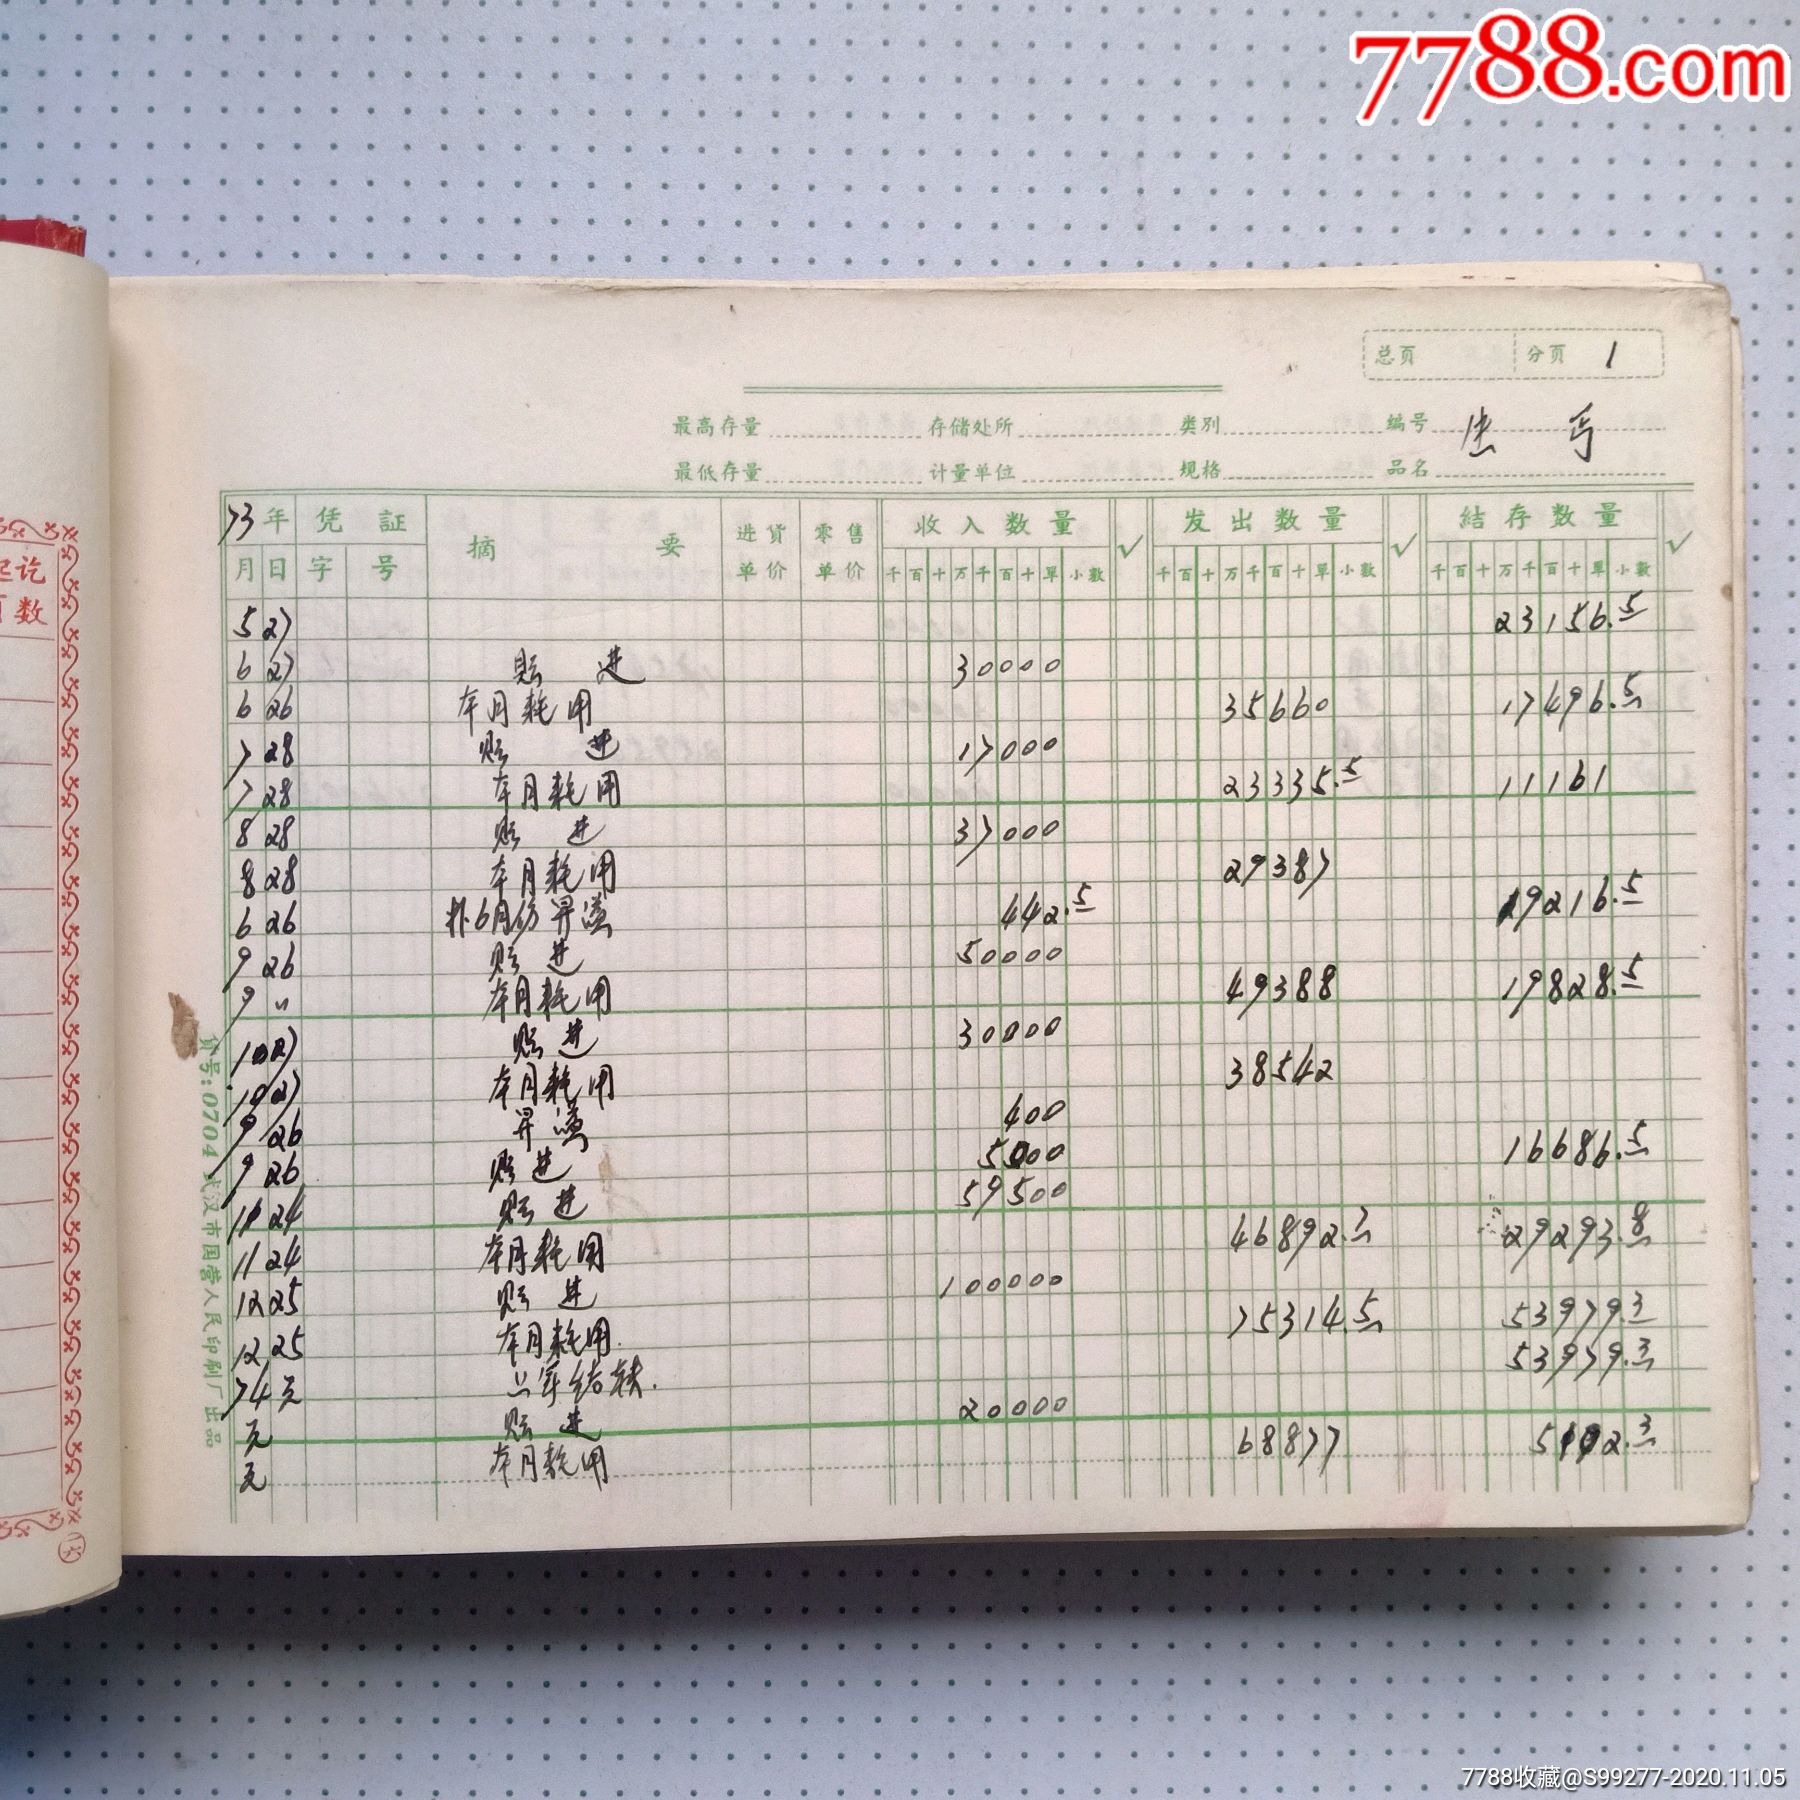 7788.com
总页 分页 1
最高存量 存储处所 类别 编号
最低存量 计量单位 规格 品名
73年 凭証 摘要 进货单价 零售单价 收入数量 √ 发出数量 √ 结存数量 √
月 日 字 号 千百十万千百十單小数 千百十万千百十單小数 千百十万千百十單小数
5 27 23156.5
6 27 赊进 30000
6 26 本月耗用 35660 17496.5
7 28 赊进 17000
7 28 本月耗用 23335.5 11161
8 28 赊进 37000
8 28 本月耗用 29387
6 26 补6月份昇溢 442.5 19216.5
9 26 赊进 50000
9 〃 本月耗用 49388 19828.5
10 27 赊进 30000
10 27 本月耗用 38542
9 26 昇溢 400
9 26 赊进 5000 16686.5
11 24 赊进 59500
11 24 本月耗用 46892.7 29293.8
12 25 赊进 100000
12 25 本月耗用 75314.5 53979.3
74 元 上年结转 53979.3
元 赊进 20000
元 本月耗用 68877 5102.3
货号:0704 武汉市国营人民印刷厂出品
起讫
页数
7788收藏@S99277-2020.11.05